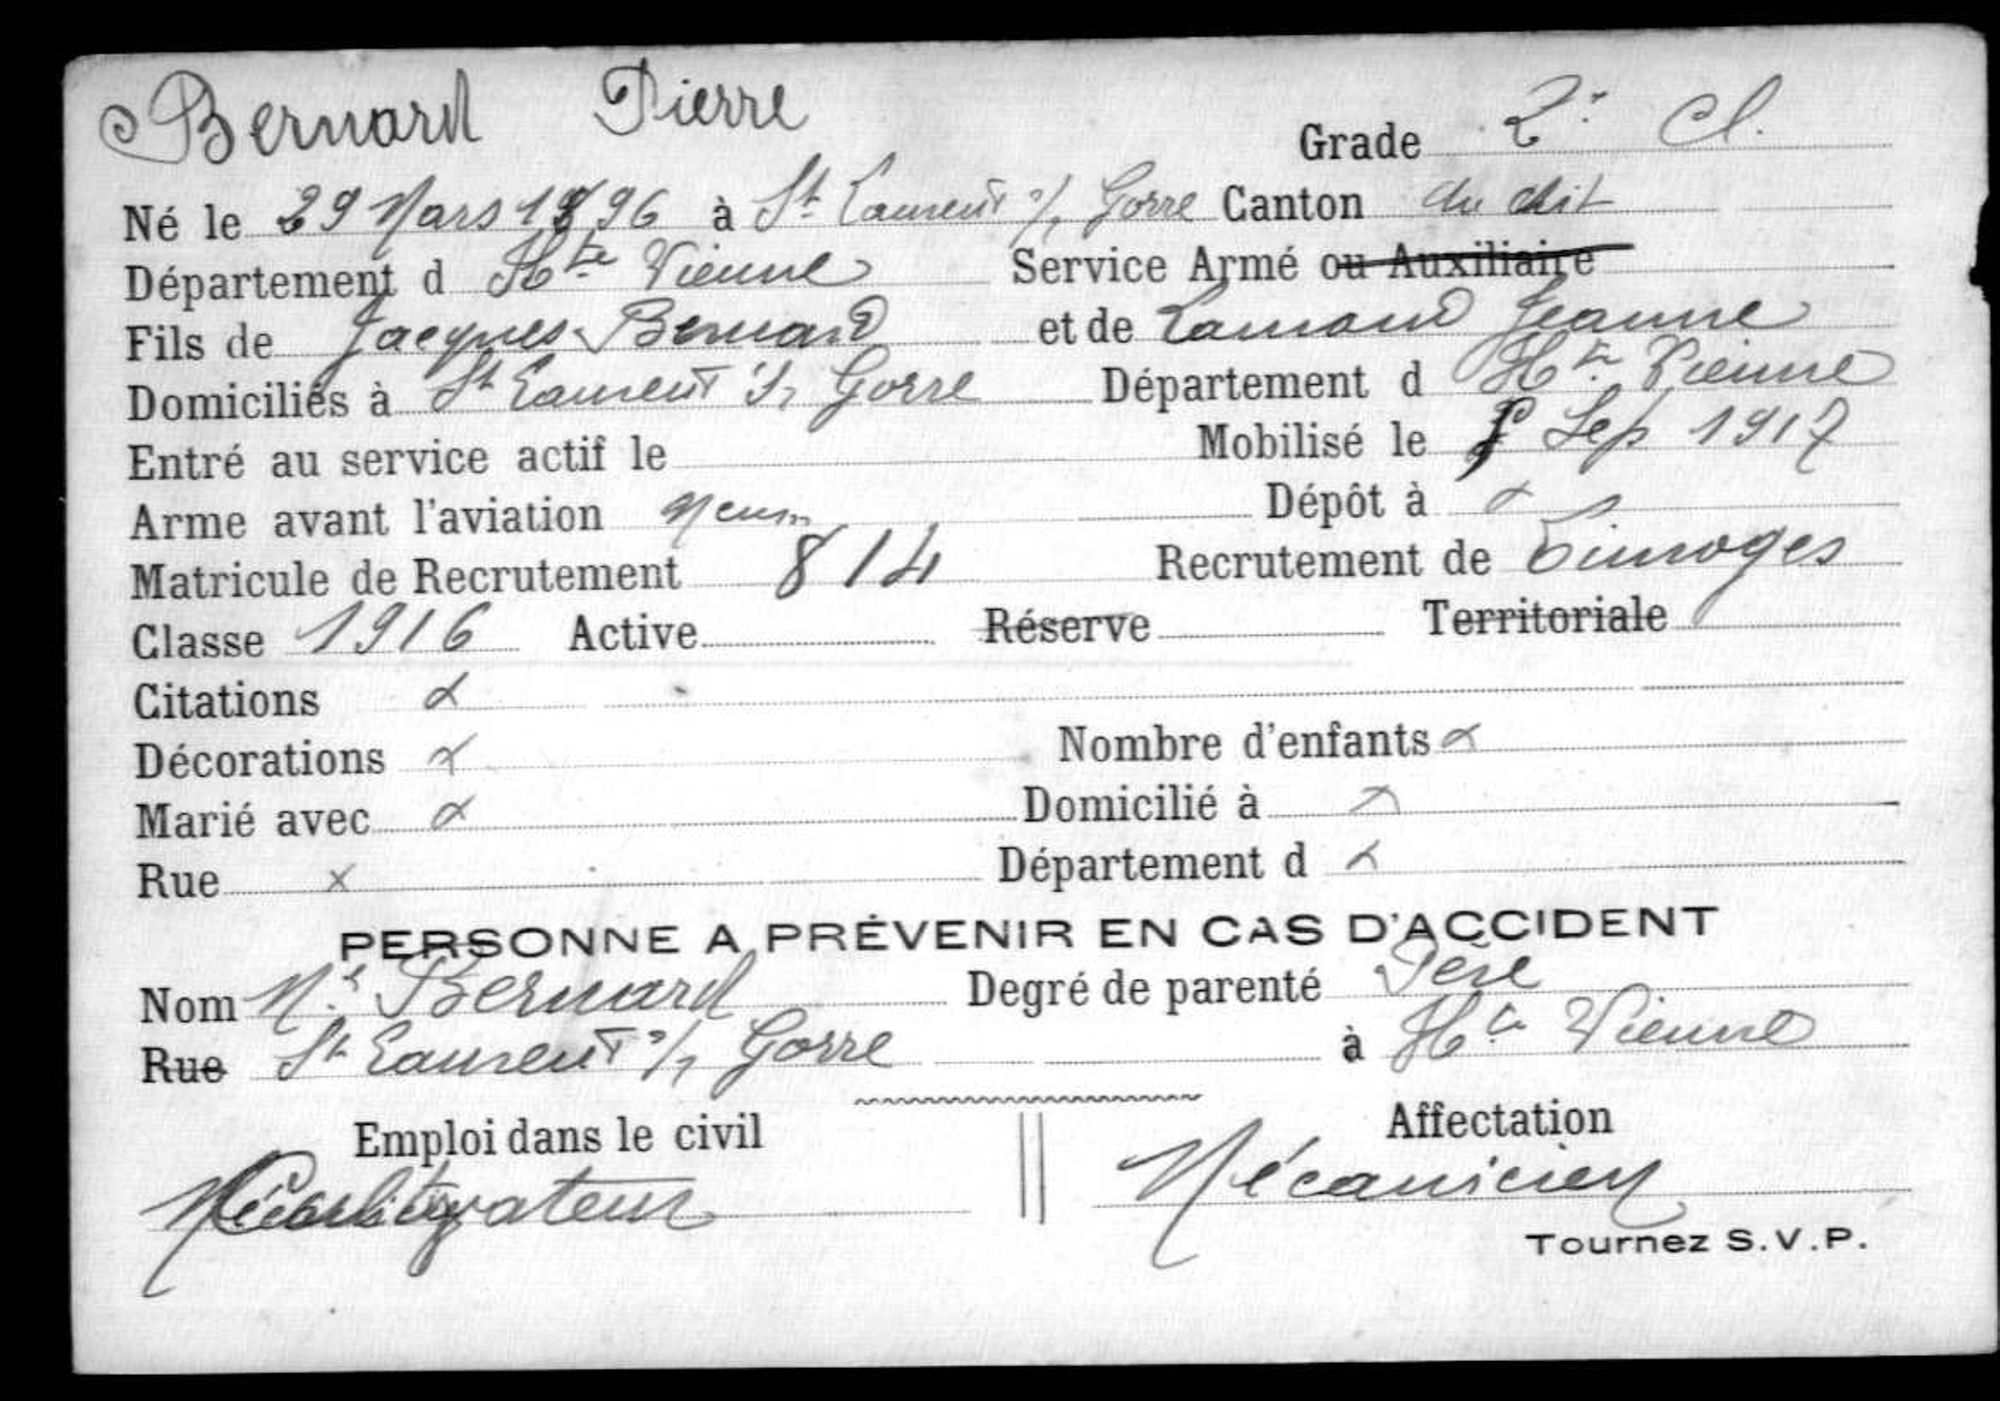 Bernard Pierre Grade 2e Cl.
Né le 29 Mars 1896 à St Laurent s/ Gorre Canton du dit
Département d Hte Vienne Service Armé ou Auxiliaire
Fils de Jacques Bernard et de Lamaud Jeanne
Domiciliés à St Laurent s/ Gorre Département d Hte Vienne
Entré au service actif le Mobilisé le Sep 1917
Arme avant l'aviation Dépôt à x
Matricule de Recrutement 814 Recrutement de Limoges
Classe 1916 Active Réserve Territoriale
Citations x
Décorations x Nombre d'enfants x
Marié avec x Domicilié à x
Rue x Département d x
PERSONNE A PRÉVENIR EN CAS D'ACCIDENT
Nom Mr Bernard Degré de parenté Père
Rue St Laurent s/ Gorre à Hte Vienne
Emploi dans le civil Affectation
Mécanicien
Tournez S.V.P.